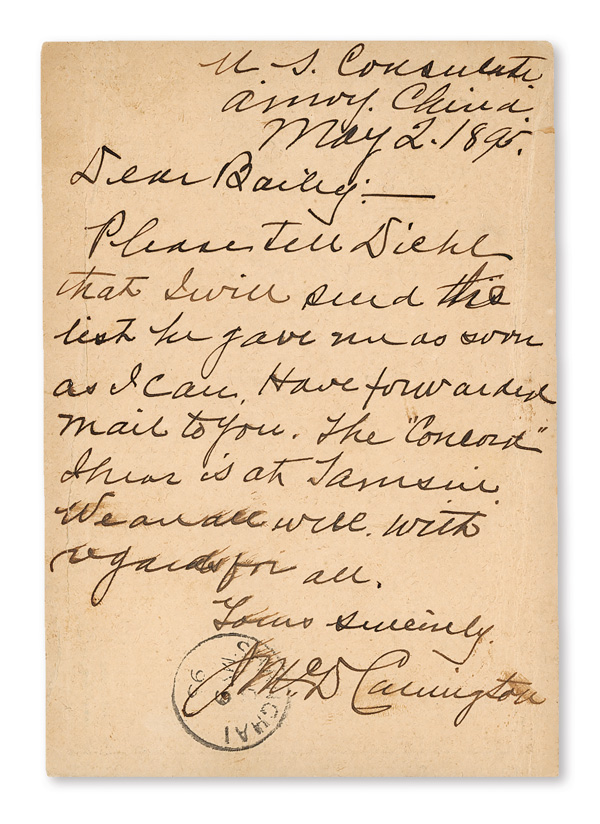 U. S. Consulate
Amoy. China.
May 2. 1895.
Dear Bailey:—
Please tell Diehl
that I will send this
list he gave me as soon
as I can. Have forwarded
mail to you. The "Concord"
I hear is at Tamsui.
We are all well. With
regards for all.
Yours sincerely.
J McD Carrington
SHANGHAI
95